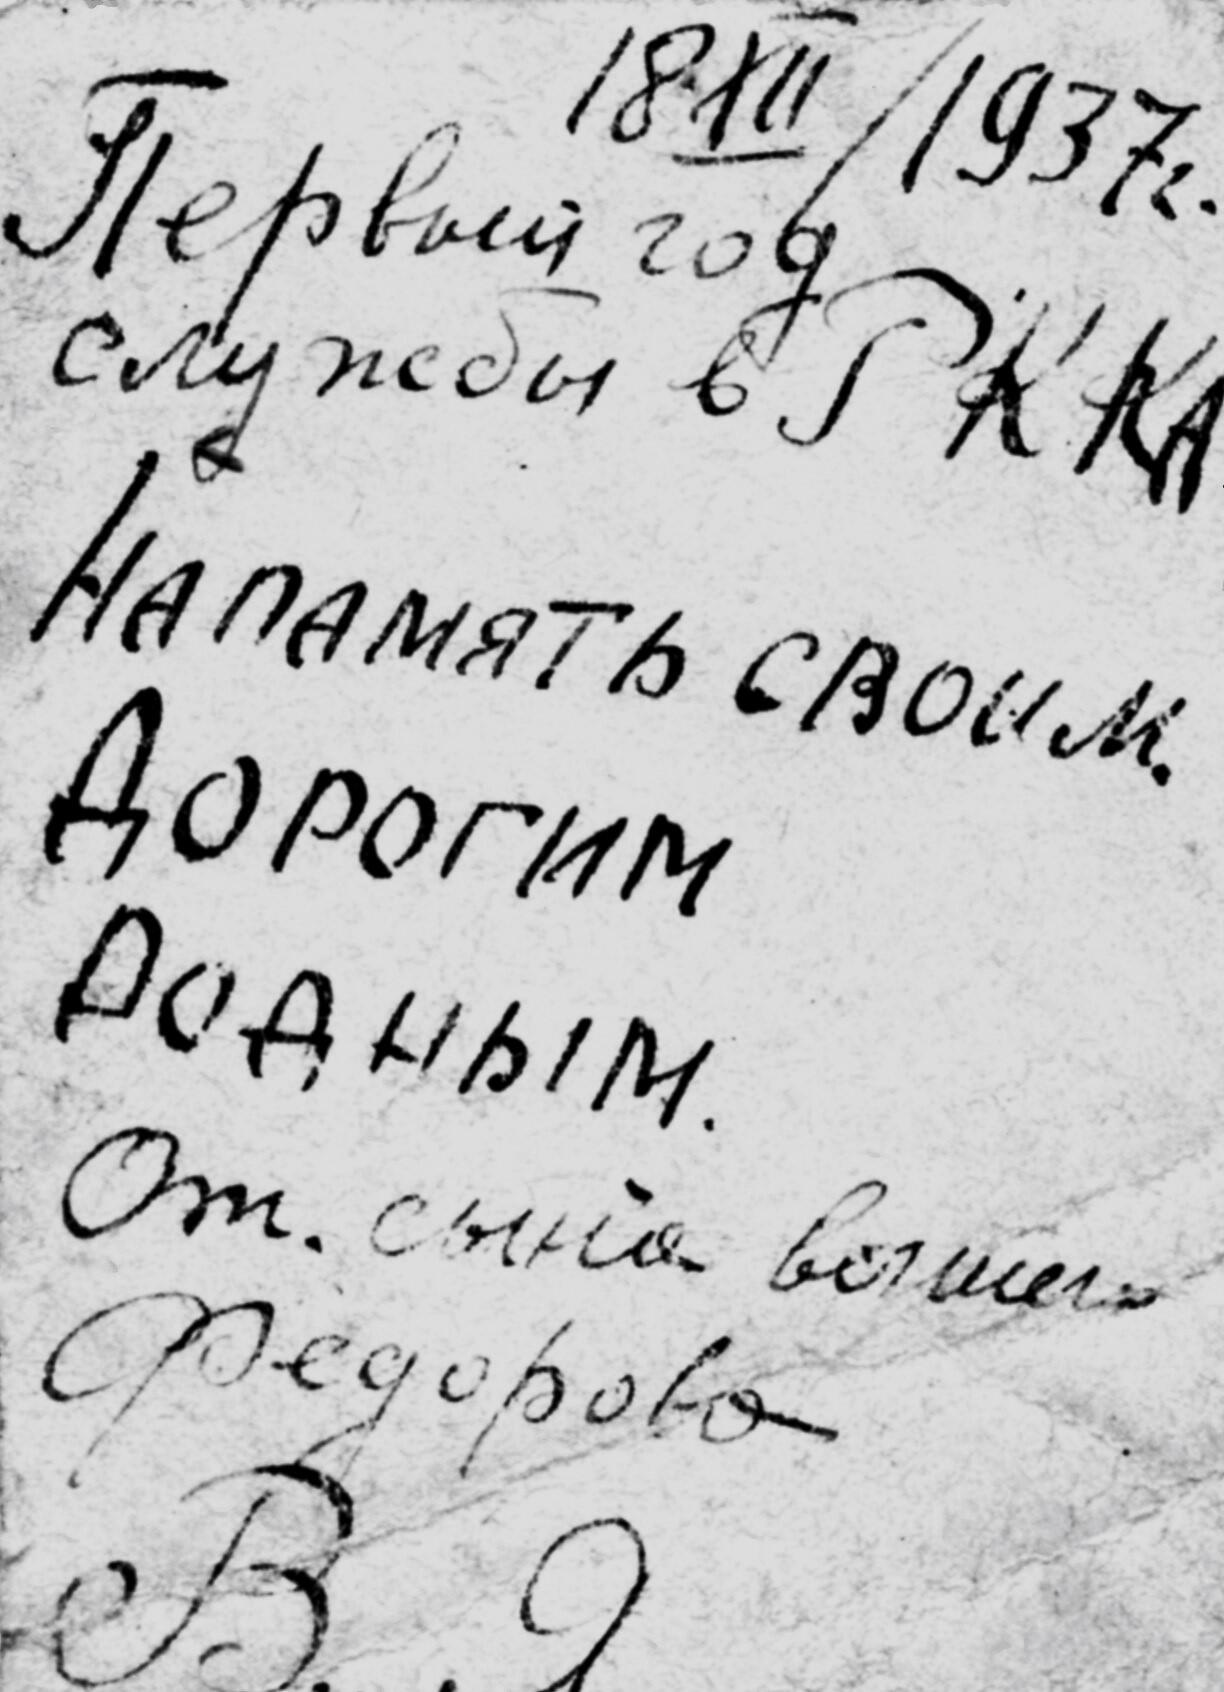 18 XII/1937г.
Первый год
службы в РККА
НА ПАМЯТЬ СВОИМ.
ДОРОГИМ
РОДНЫМ.
От. сына вашего
Федорова
В.